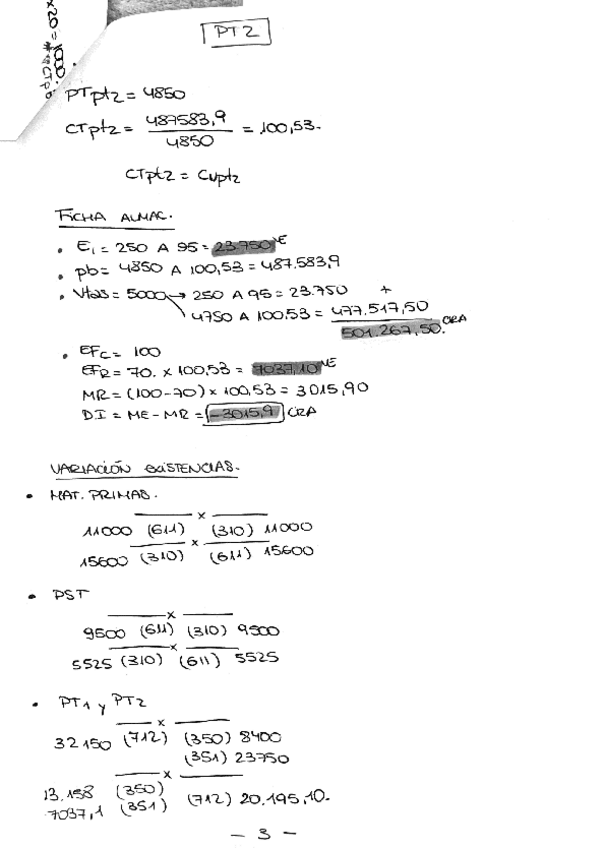 x20 = 1000.
CTpb
PT2
PTpt2 = 4850
CTpt2 = 487583,9 / 4850 = 100,53.
CTpt2 = Cupt2
FICHA ALMAC.
• Ei = 250 A 95 = 23.750 NE
• pb = 4850 A 100,53 = 487.583,9
• Vtas = 5000 → 250 A 95 = 23.750 +
4750 A 100.53 = 477.517,50
501.267,50. CRA
• EFc = 100
EFR = 70. x 100.53 = 7037,10 NE
MR = (100-70) x 100.53 = 3015,90
DI = ME - MR = -3015,9 CRA
VARIACIÓN EXISTENCIAS.
• MAT. PRIMAS.
x
11000 (611) (310) 11000
x
15600 (310) (611) 15600
• PST
x
9500 (611) (310) 9500
x
5525 (310) (611) 5525
• PT1 y PT2
x
32150 (712) (350) 8400
(351) 23750
x
13.158 (350)
7037,1 (351) (712) 20.195,10.
- 3 -